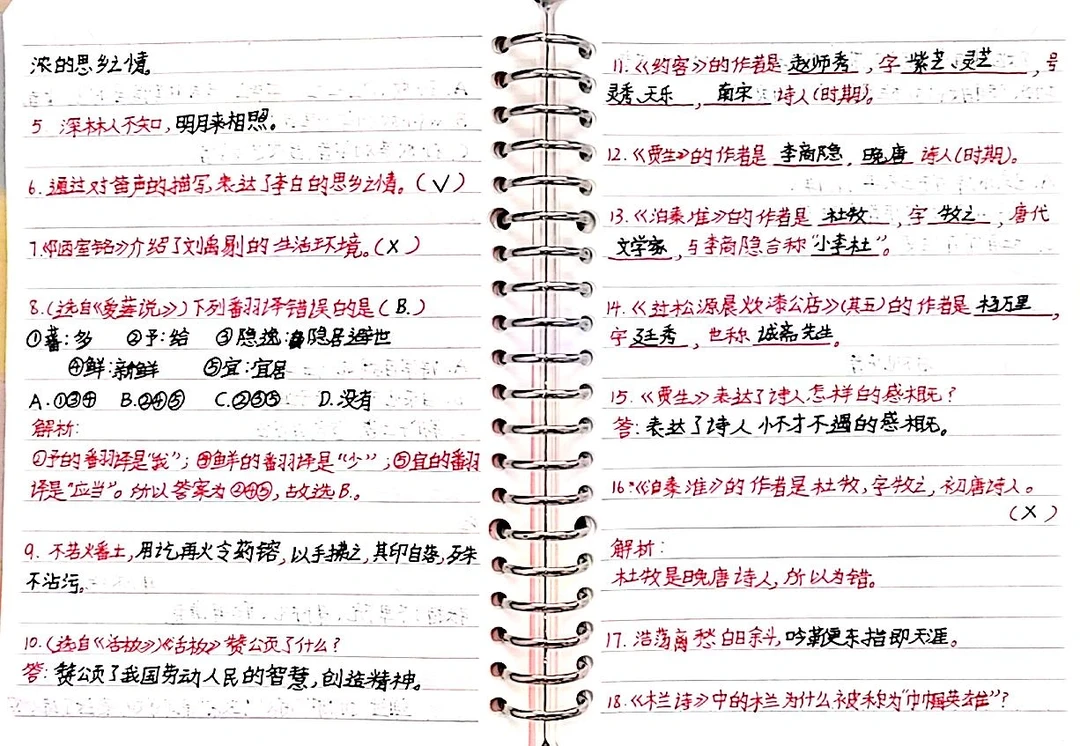 浓的思乡之情。
5. 深林人不知，明月来相照。
6. 通过对笛声的描写，表达了李白的思乡之情。（√）
7.《陋室铭》介绍了刘禹锡的生活环境。（×）
8.（选自《爱莲说》）下列翻译错误的是（B.）
①蕃：多 ②予：给 ③隐逸：隐居避世
④鲜：新鲜 ⑤宜：宜居
A.①③④ B.②④⑤ C.②③⑤ D.没有
解析：
②予的翻译是“我”；④鲜的翻译是“少”；⑤宜的翻
译是“应当”。所以答案为②④⑤，故选B.。
9. 不若燔土，用讫再火令药镕，以手拂之，其印自落，殊
不沾污。
10.（选自《活板》）《活板》赞颂了什么？
答：赞颂了我国劳动人民的智慧，创造精神。
11.《约客》的作者是 赵师秀，字 紫芝、灵芝，号
灵秀、天乐，南宋 诗人（时期）。
12.《贾生》的作者是 李商隐，晚唐 诗人（时期）。
13.《泊秦淮》的作者是 杜牧，字 牧之，唐代
文学家，与李商隐合称“小李杜”。
14.《过松源晨炊漆公店》（其五）的作者是 杨万里，
字 廷秀，也称 诚斋先生。
15.《贾生》表达了诗人怎样的感慨？
答：表达了诗人怀才不遇的感慨。
16.《泊秦淮》的作者是杜牧，字牧之，初唐诗人。
（×）
解析：
杜牧是晚唐诗人，所以为错。
17. 浩荡离愁白日斜，吟鞭东指即天涯。
18.《木兰诗》中的木兰为什么被称为“巾帼英雄”？